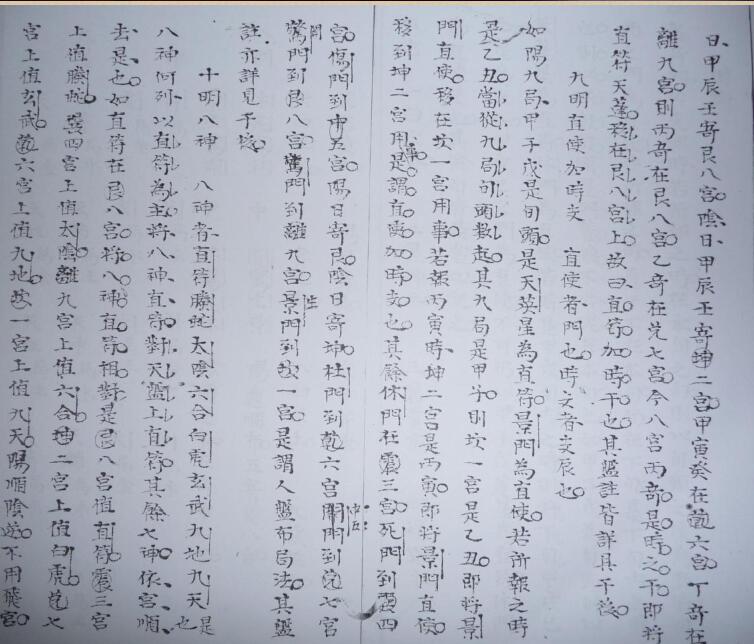 日甲辰壬寄艮八宮陰日甲辰壬寄坤二宮甲寅癸在乾六宮丁奇在
離九宮則丙奇在艮八宮乙奇在兌七宮今八宮丙奇是時之干即將
直符天蓬移在艮八宮上故曰直符加時干也其盤註皆詳具于後
九明直使加時支 直使者門也時支者支辰也
如陽九局甲子戊是旬頭是天英星為直符景門為直使若所報之時
是乙丑當從九局旬頭数起其九局是甲子則坎一宮是乙丑即將景
門直使移在坎一宮用事若報丙寅時坤二宮是丙寅即將景門直使
移到坤二宮用事是謂直使加時支也其餘休門在震三宮死門到巽四
宮傷門到中五宮陽日寄艮陰日寄坤杜門到乾六宮開門到兌七宮
驚門到艮八宮驚門到離九宮景門到坎一宮是謂人盤布局法其盤
註亦詳見于後
十明八神 八神者直符螣蛇太陰六合白虎玄武九地九天是也
八神何列以直符為主將八神直符對天盤上直符其餘七神依宮順
去是也如直符在艮八宮將八神直符相對是艮八宮值直符震三宮
上值螣蛇巽四宮上值太陰離九宮上值六合坤二宮上值白虎兌七
宮上值玄武乾六宮上值九地坎一宮上值九天陽順陰逆不用飛宮